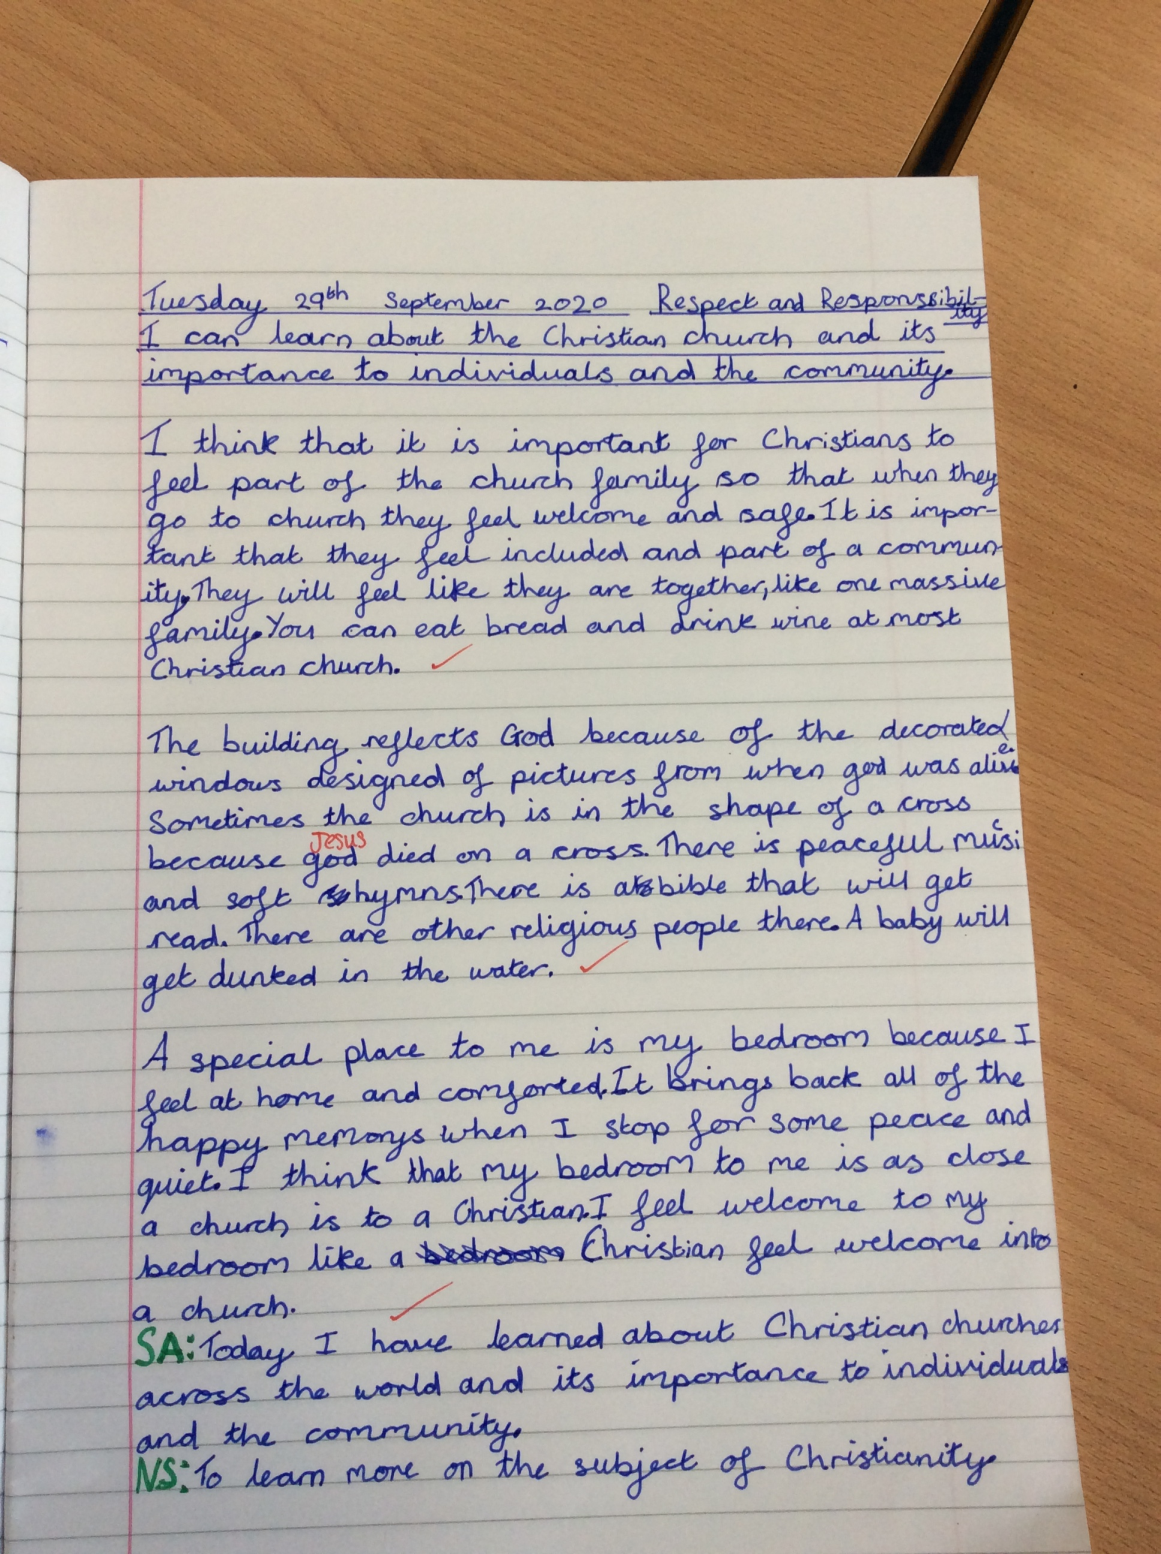 Tuesday 29th September 2020 Respect and Responssibil-
ity
I can learn about the Christian church and its
importance to individuals and the community.
I think that it is important for Christians to
feel part of the church family so that when they
go to church they feel welcome and safe. It is impor-
tant that they feel included and part of a commun-
ity. They will feel like they are together, like one massive
family. You can eat bread and drink wine at most
Christian church.
The building reflects God because of the decorated
windows designed of pictures from when god was alive
Sometimes the church is in the shape of a cross
Jesus
because god died on a cross. There is peaceful music
and soft hymns. There is a bible that will get
read. There are other religious people there. A baby will
get dunked in the water.
A special place to me is my bedroom because I
feel at home and comforted. It brings back all of the
happy memorys when I stop for some peace and
quiet. I think that my bedroom to me is as close
a church is to a Christian. I feel welcome to my
bedroom like a bedroom Christian feel welcome into
a church.
SA: Today I have learned about Christian churches
across the world and its importance to individuals
and the community.
NS: To learn more on the subject of Christianity.